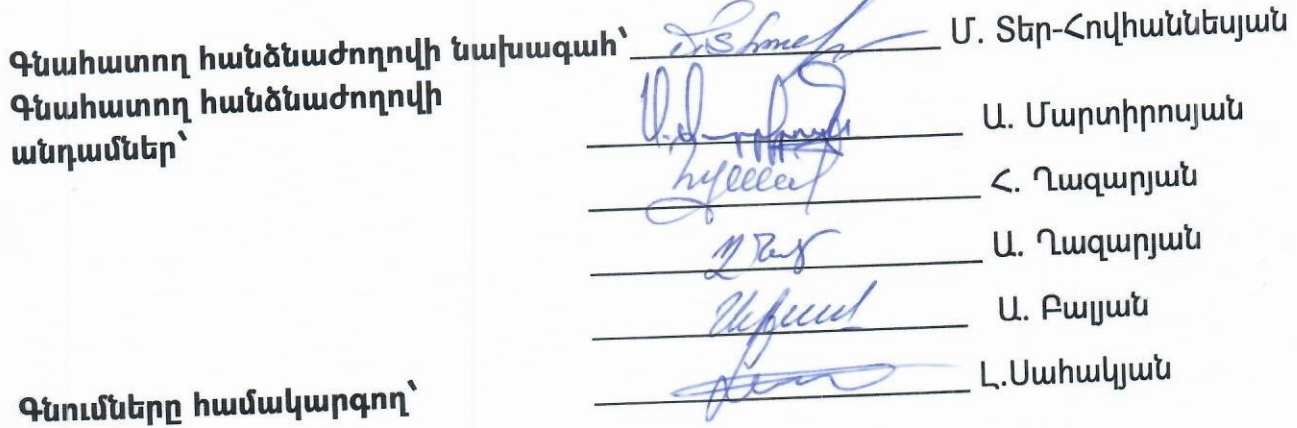 Գնահատող հանձնաժողովի նախագահ՝ Մ. Տեր-Հովհաննեսյան
Գնահատող հանձնաժողովի
անդամներ՝ Ա. Մարտիրոսյան
Հ. Ղազարյան
Ա. Ղազարյան
Ա. Բալյան
Լ.Սահակյան
Գնումները համակարգող՝